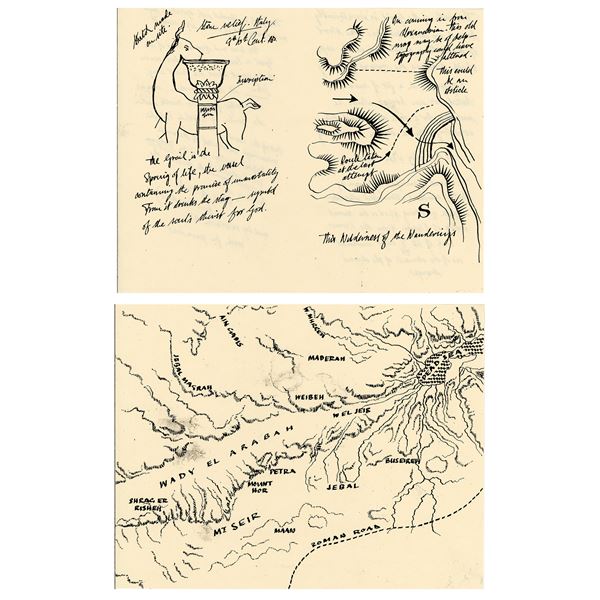 Sketch made
on site.
Stone relief. Italy.
Inscription
The Grail is the
Spring of life, the vessel
containing the promise of immortality
From it drinks the stag — symbol
of the soul's thirst for God.
On coming in from
Alexandria this old
map may be of help
topography could have
altered.
This could
be an
obstacle
at the last
attempt
S
This Wilderness of the Wanderings
AIN GADIS
MADERAH
JEBAL MAGRAH
WEIBEH
WEL JEIB
DEAD SEA
WADY EL ARABAH
BUSEIREH
PETRA
MOUNT
HOR
JEBAL
SHRAG ER
RISHEH
MT SEIR
MAAN
ROMAN ROAD